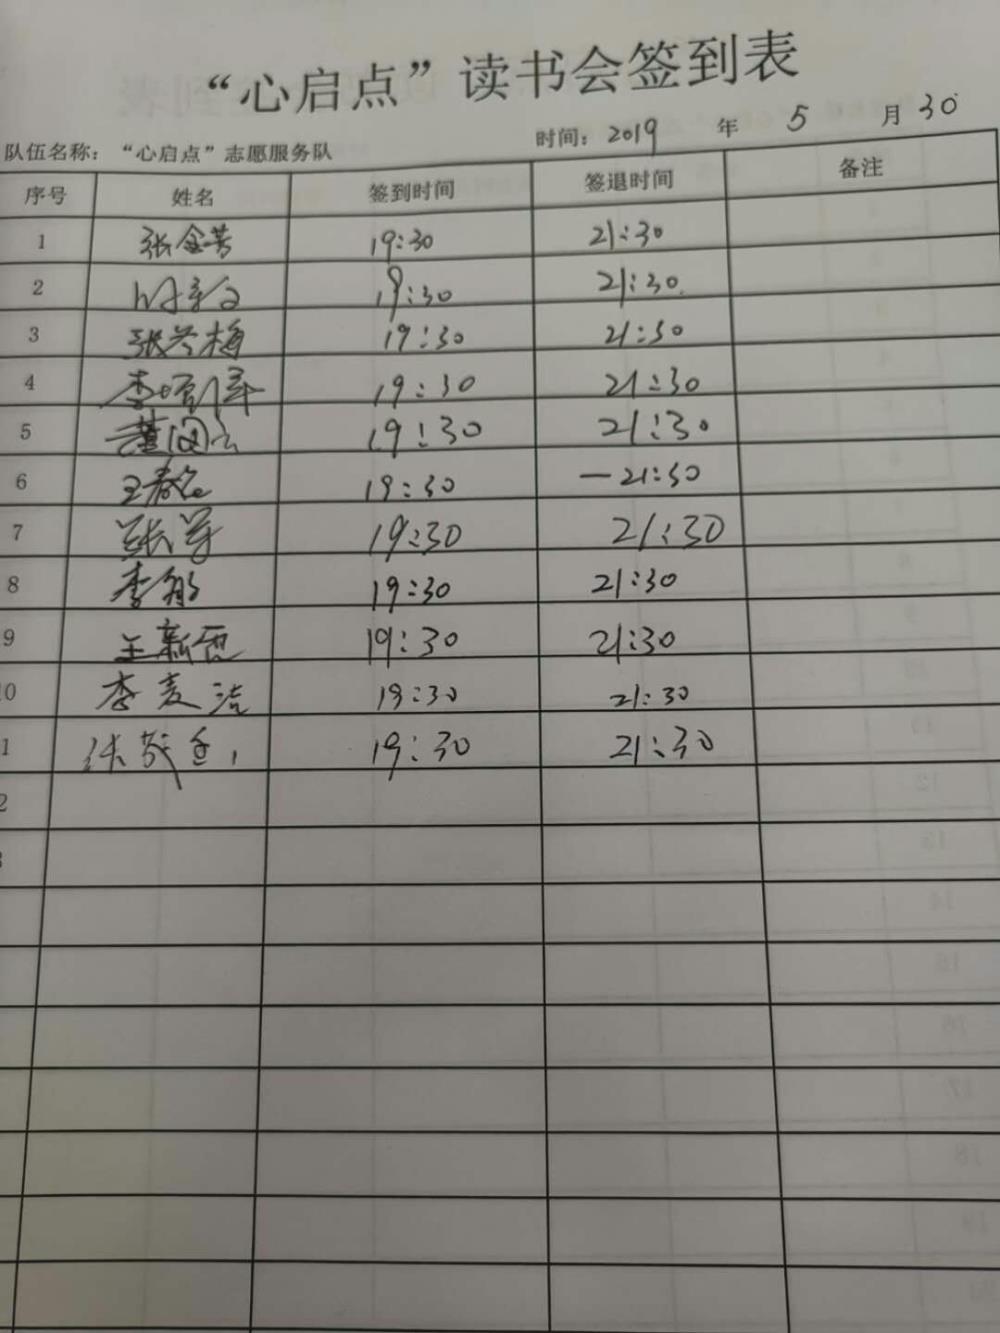 “心启点”读书会签到表
队伍名称：“心启点”志愿服务队 时间：2019 年 5 月 30
序号 姓名 签到时间 签退时间 备注
1 张金芳 19:30 21:30
2 19:30 21:30
3 张兴梅 19:30 21:30
4 李 19:30 21:30
5 董国云 19:30 21:30
6 王春 19:30 —21:30
7 张 19:30 21:30
8 李 19:30 21:30
9 王新 19:30 21:30
10 李麦洁 19:30 21:30
11 19:30 21:30